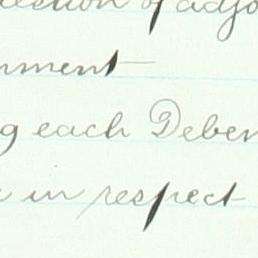 of adjo
nment
g each Deben
in respect